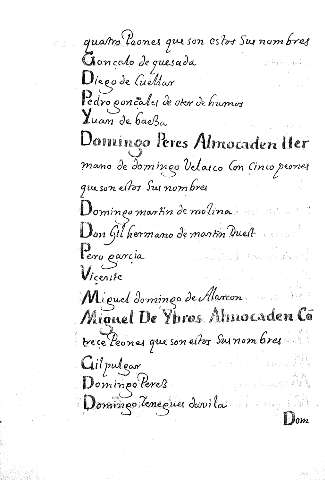 quatro Peones que son estos Sus nombres
Gonçalo de quesada
Diego de Cuellar
Pedro gonçales de oter de humos
Yuan de baeßa
Domingo Peres Almocaden Her
mano de domingo Velasco Con cinco peones
que son estos Sus nombres
Domingo martin de molina
Don Gil hermano de martin Duest
Pero garcia
Viçente
Miguel domingo de Alarcon
Miguel De Ybros Almocaden Cō
treçe Peones que son estos Sus nombres
Gil pulgar
Domingo Pereß
Domingo Yenegues davila
Dom